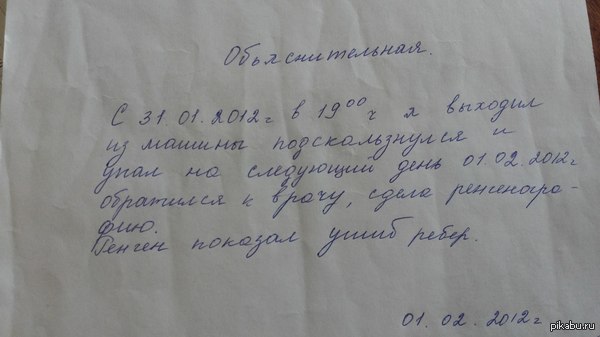 Обьяснительная.
С 31.01.2012г в 19⁰⁰ч я выходил
из машины подскальзнулся и
упал на следующий день 01.02.2012г
обратился к врачу, сдела ренгеногра-
фию.
Ренген показал ушиб ребер.
01.02.2012г
pikabu.ru